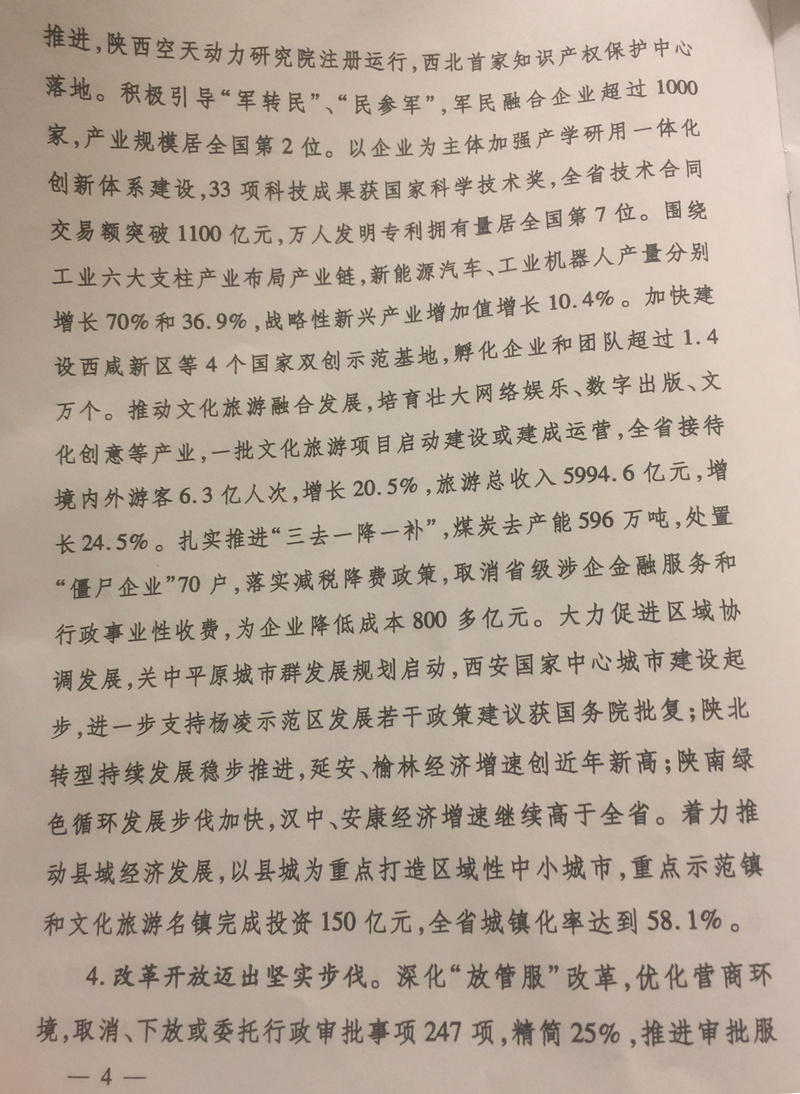 推进,陕西空天动力研究院注册运行,西北首家知识产权保护中心
落地。积极引导“军转民”、“民参军”,军民融合企业超过1000
家,产业规模居全国第2位。以企业为主体加强产学研用一体化
创新体系建设,33项科技成果获国家科学技术奖,全省技术合同
交易额突破1100亿元,万人发明专利拥有量居全国第7位。围绕
工业六大支柱产业布局产业链,新能源汽车、工业机器人产量分别
增长70%和36.9%,战略性新兴产业增加值增长10.4%。加快建
设西咸新区等4个国家双创示范基地,孵化企业和团队超过1.4
万个。推动文化旅游融合发展,培育壮大网络娱乐、数字出版、文
化创意等产业,一批文化旅游项目启动建设或建成运营,全省接待
境内外游客6.3亿人次,增长20.5%,旅游总收入5994.6亿元,增
长24.5%。扎实推进“三去一降一补”,煤炭去产能596万吨,处置
“僵尸企业”70户,落实减税降费政策,取消省级涉企金融服务和
行政事业性收费,为企业降低成本800多亿元。大力促进区域协
调发展,关中平原城市群发展规划启动,西安国家中心城市建设起
步,进一步支持杨凌示范区发展若干政策建议获国务院批复;陕北
转型持续发展稳步推进,延安、榆林经济增速创近年新高;陕南绿
色循环发展步伐加快,汉中、安康经济增速继续高于全省。着力推
动县域经济发展,以县城为重点打造区域性中小城市,重点示范镇
和文化旅游名镇完成投资150亿元,全省城镇化率达到58.1%。
4.改革开放迈出坚实步伐。深化“放管服”改革,优化营商环
境,取消、下放或委托行政审批事项247项,精简25%,推进审批服
— 4 —